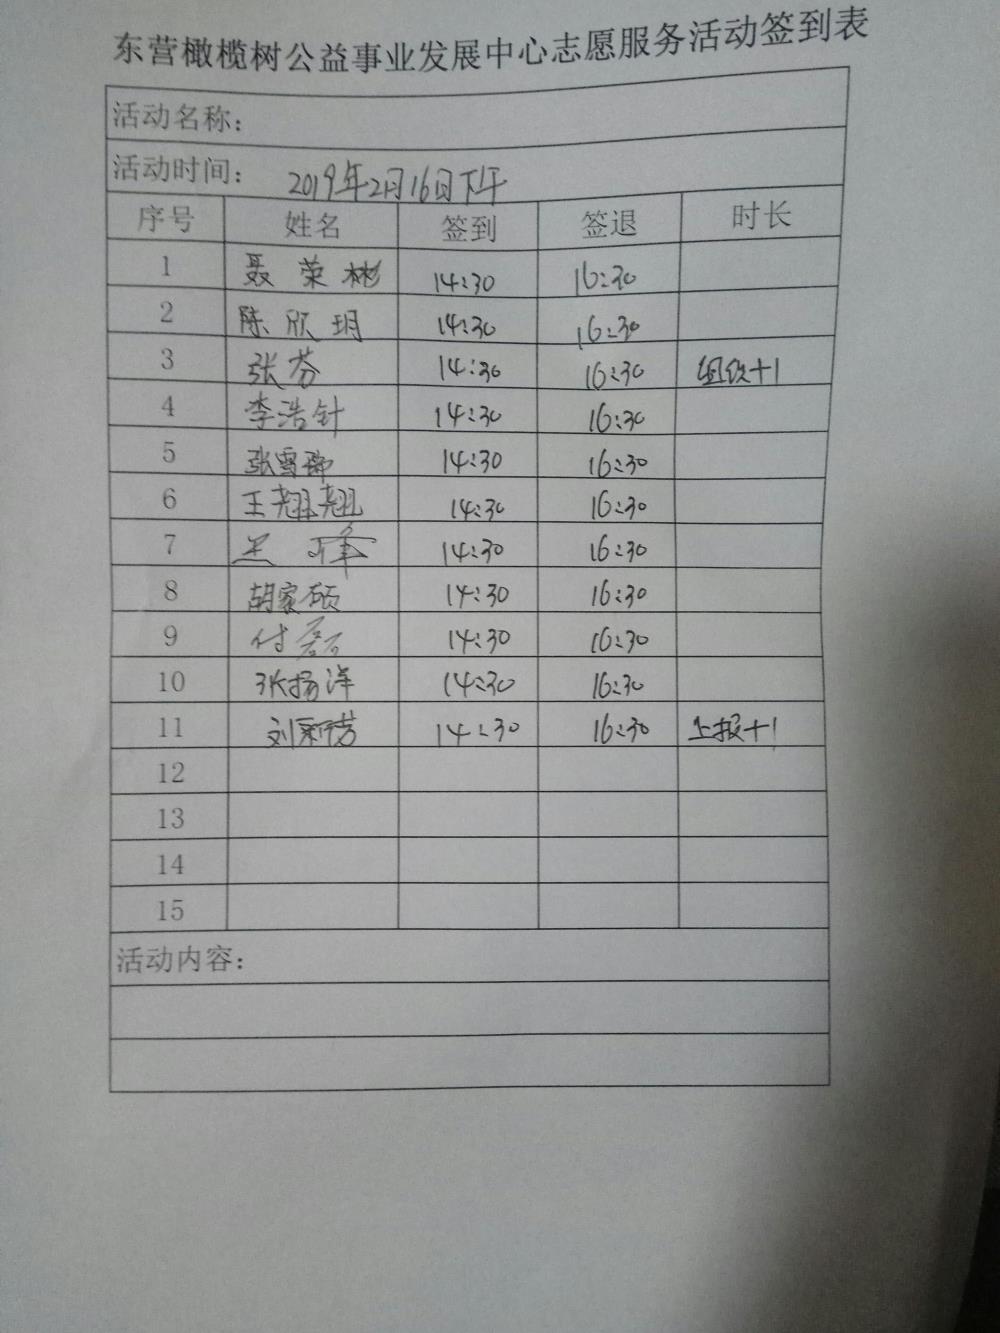 东营橄榄树公益事业发展中心志愿服务活动签到表
活动名称：
活动时间： 2019年2月16日下午
序号 姓名 签到 签退 时长
1 聂荣彬 14:30 16:30
2 陈欣玥 14:30 16:30
3 张芬 14:30 16:30 组织+1
4 李浩针 14:30 16:30
5 张雪 14:30 16:30
6 王翘翘 14:30 16:30
7 14:30 16:30
8 胡家硕 14:30 16:30
9 付磊 14:30 16:30
10 张扬洋 14:30 16:30
11 刘新芳 14:30 16:30 上报+1
12
13
14
15
活动内容：